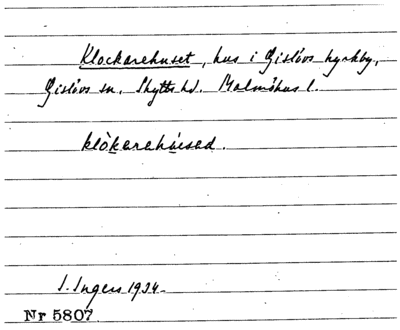 Klockarehuset, hus i Gislövs kyrkby,
Gislövs sn. Skytts hd. Malmöhus l.
klòkarehúesad.
I. Ingers 1934.
Nr 5807